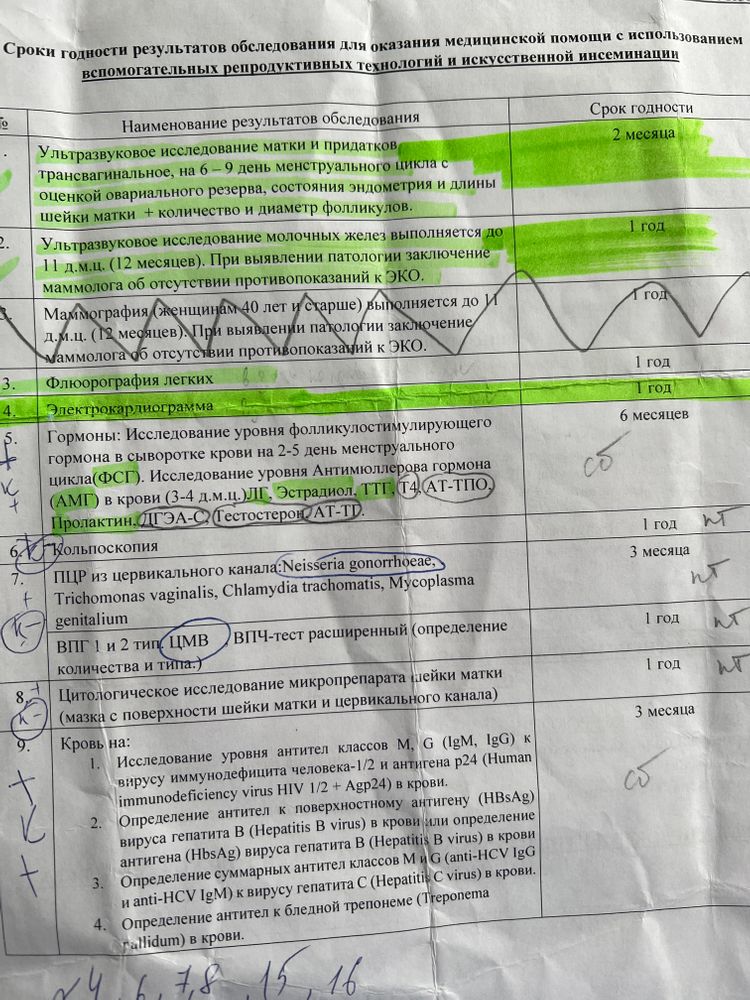 Сроки годности результатов обследования для оказания медицинской помощи с использованием
вспомогательных репродуктивных технологий и искусственной инсеминации
№ Наименование результатов обследования Срок годности
Ультразвуковое исследование матки и придатков 2 месяца
трансвагинальное, на 6 – 9 день менструального цикла с
оценкой овариального резерва, состояния эндометрия и длины
шейки матки + количество и диаметр фолликулов.
2. Ультразвуковое исследование молочных желез выполняется до 1 год
11 д.м.ц. (12 месяцев). При выявлении патологии заключение
маммолога об отсутствии противопоказаний к ЭКО.
3. Маммография (женщинам 40 лет и старше) выполняется до 11 1 год
д.м.ц. (12 месяцев). При выявлении патологии заключение
маммолога об отсутствии противопоказаний к ЭКО.
3. Флюорография легких 1 год
4. Электрокардиограмма 1 год
5. Гормоны: Исследование уровня фолликулостимулирующего 6 месяцев
гормона в сыворотке крови на 2-5 день менструального
цикла(ФСГ). Исследование уровня Антимюллерова гормона сб
(АМГ) в крови (3-4 д.м.ц.)ЛГ, Эстрадиол, ТТГ, Т4, АТ-ТПО,
Пролактин, ДГЭА-С, Тестостерон, АТ-ТГ.
6. Кольпоскопия 1 год пт
7. ПЦР из цервикального канала:Neisseria gonorrhoeae, 3 месяца
Trichomonas vaginalis, Chlamydia trachomatis, Mycoplasma пт
genitalium
ВПГ 1 и 2 тип, ЦМВ , ВПЧ-тест расширенный (определение 1 год пт
количества и типа.)
8. Цитологическое исследование микропрепарата шейки матки 1 год пт
(мазка с поверхности шейки матки и цервикального канала)
9. Кровь на: 3 месяца
1. Исследование уровня антител классов M, G (IgM, IgG) к
вирусу иммунодефицита человека-1/2 и антигена p24 (Human
immunodeficiency virus HIV 1/2 + Agp24) в крови. сб
2. Определение антител к поверхностному антигену (HBsAg)
вируса гепатита B (Hepatitis B virus) в крови или определение
антигена (HbsAg) вируса гепатита B (Hepatitis B virus) в крови
3. Определение суммарных антител классов M и G (anti-HCV IgG
и anti-HCV IgM) к вирусу гепатита C (Hepatitis C virus) в крови.
4. Определение антител к бледной трепонеме (Treponema
pallidum) в крови.
4, 6, 7,8, 15, 16